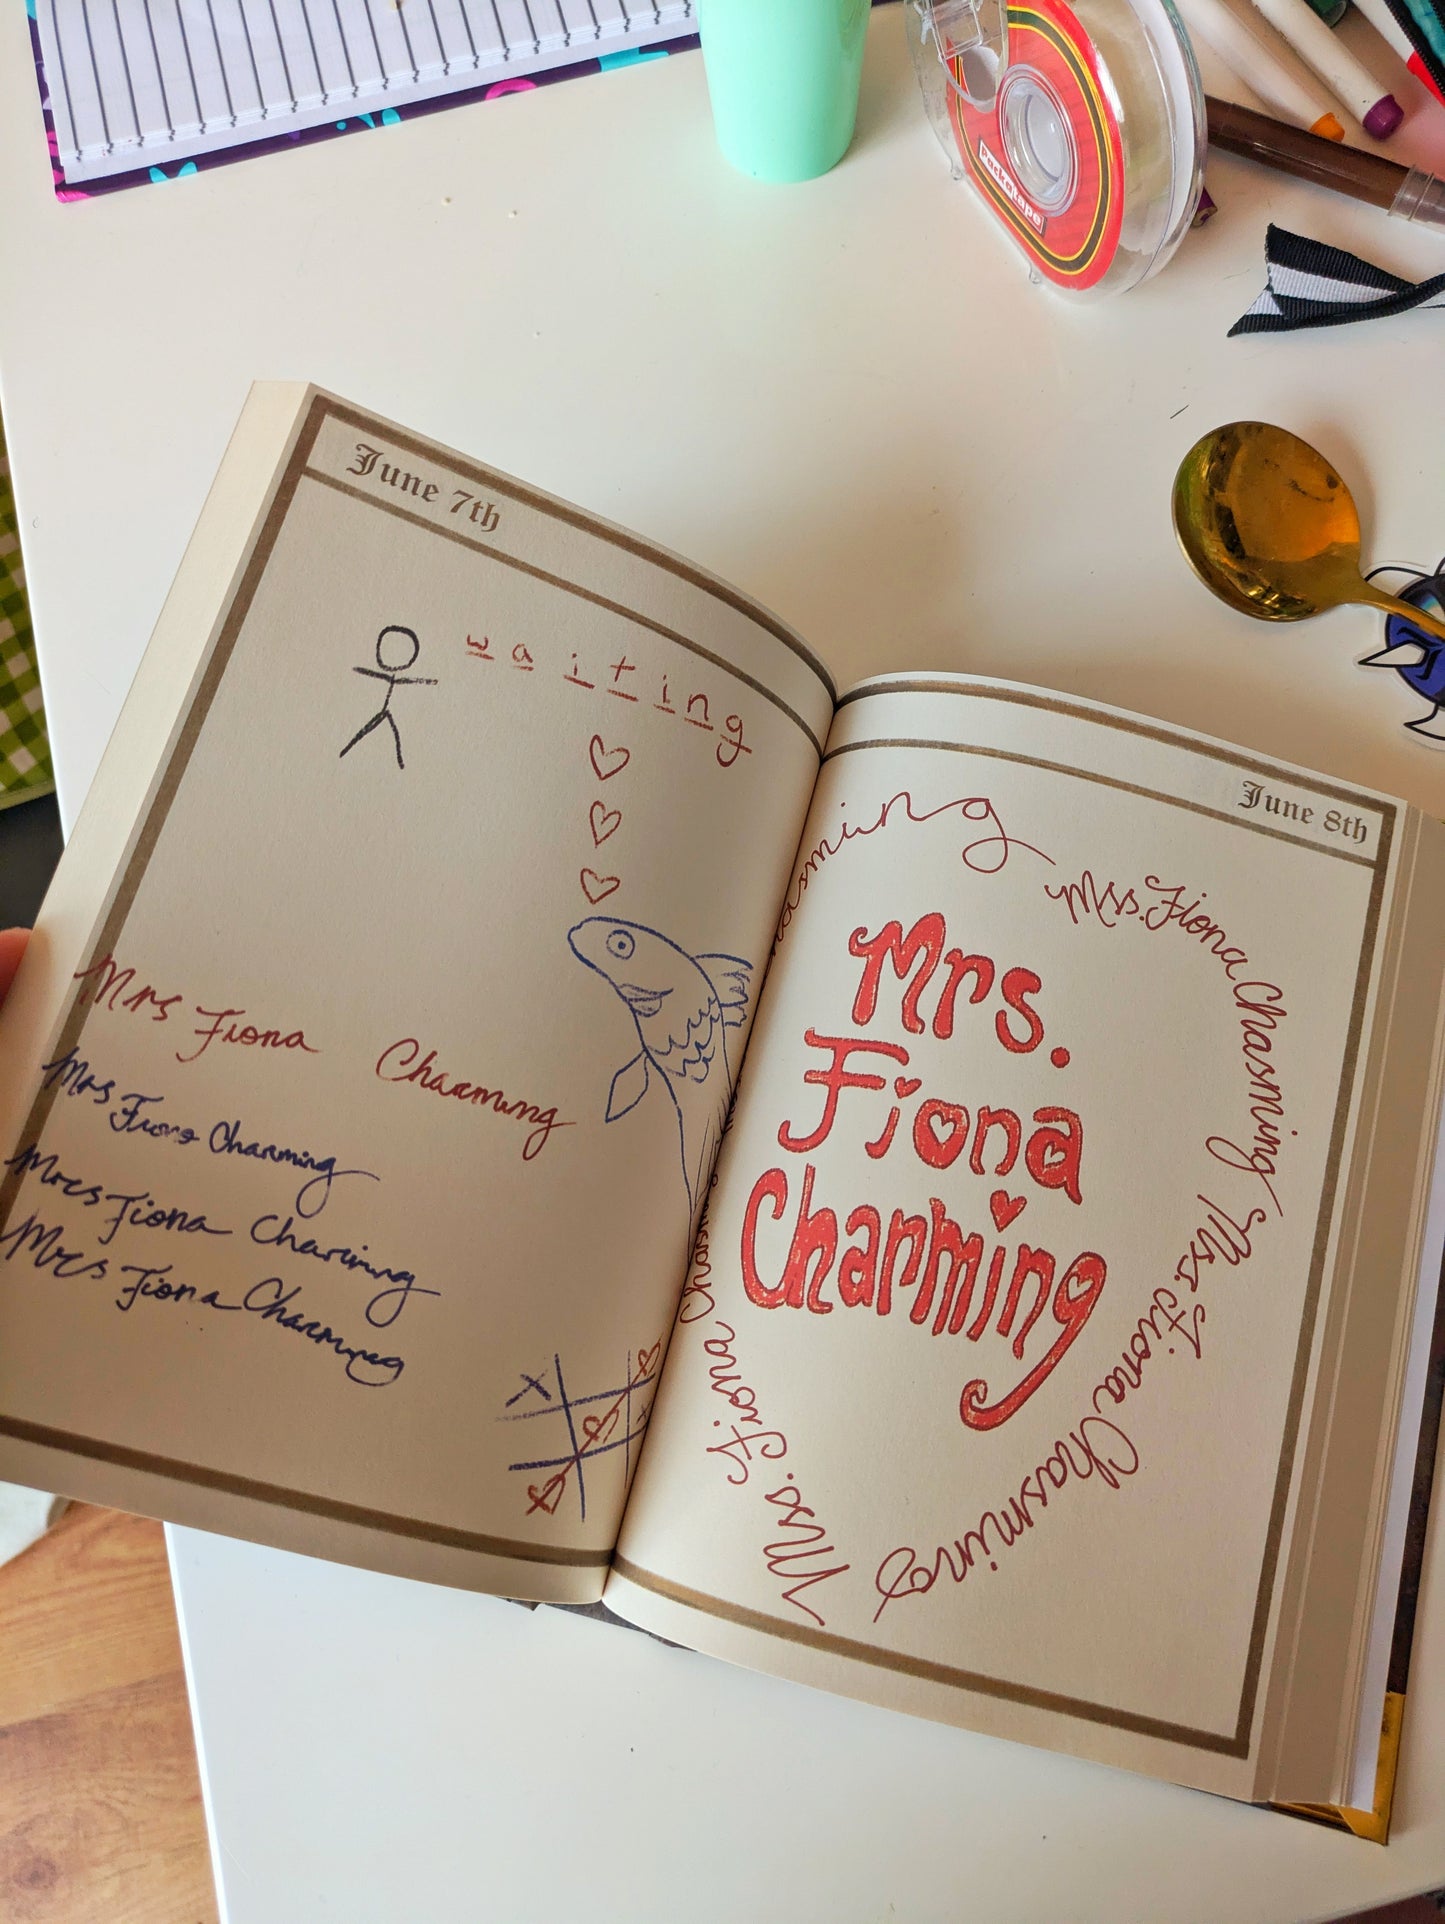 Packetape
June 7th
waiting
Mrs Fiona Charming
Mrs Fiona Charming
Mrs Fiona Charming
Mrs Fiona Charming
X
June 8th
Mrs. Fiona Charming
Mrs. Fiona Charming
Mrs. Fiona Charming
arming
Mrs.
Fiona
Charming